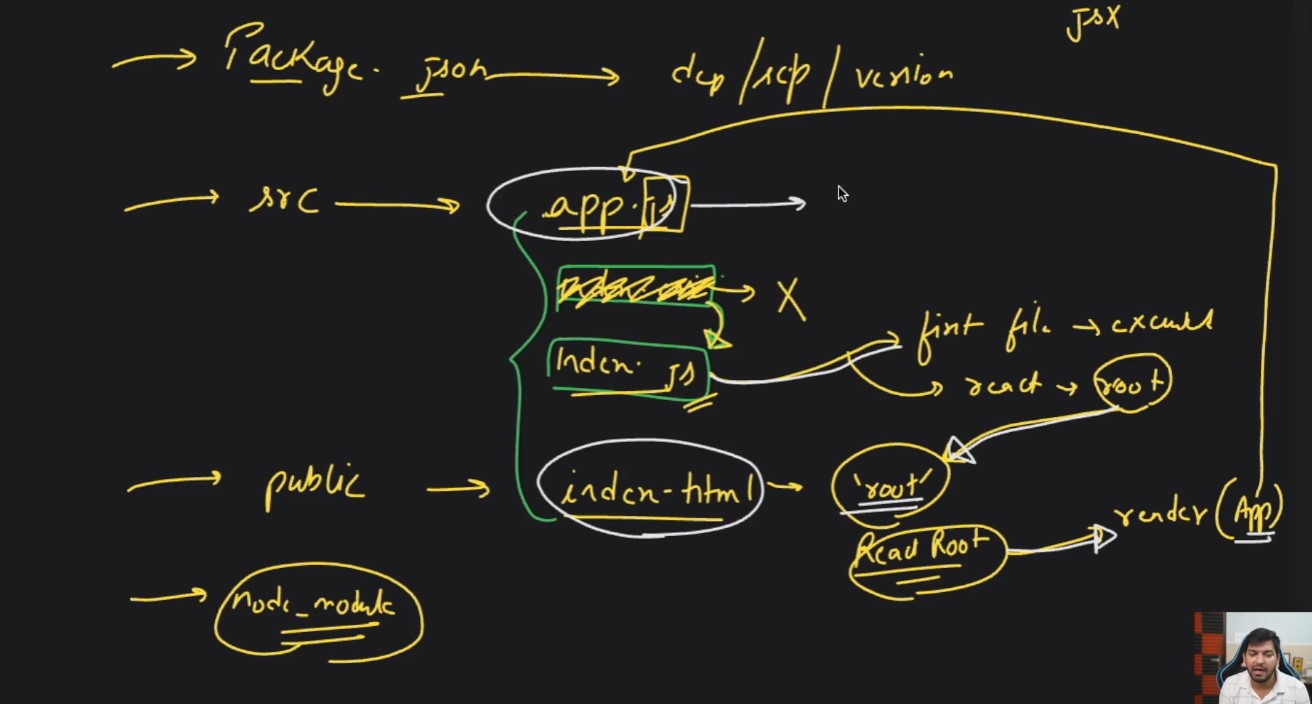 JSX
Package. json dep/scp/version
src app.js
X
Index. JS first file → excuts
react → root
public index-html 'root'
render (App)
React Root
node_module